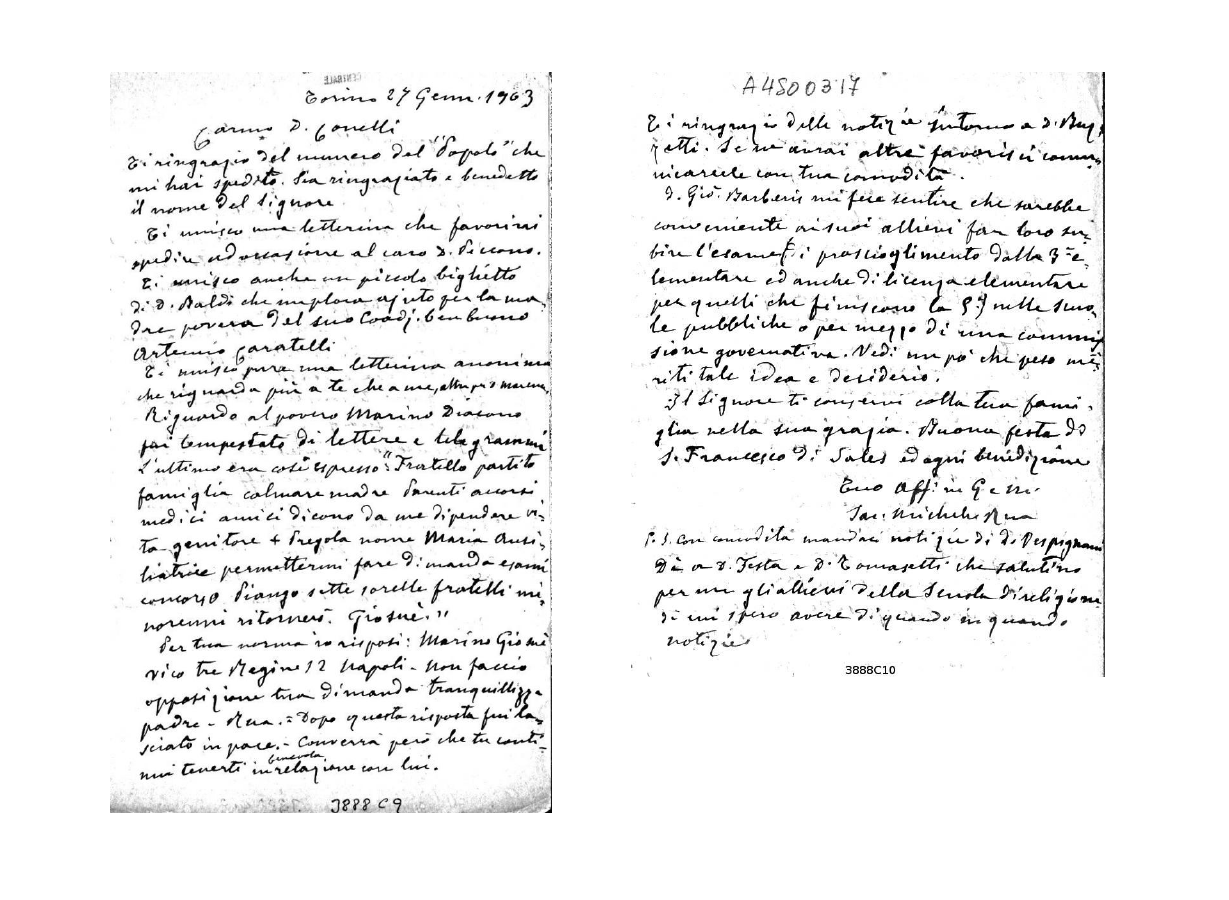 CENTRALE
Torino 27 Genn. 1903
Carmo D. Conelli
Ti ringrazio del numero del "Popolo" che
mi hai spedito. Sia ringraziato e benedetto
il nome del Signore
Ti unisco una letterina che favorirai
spedire ad occasione al caro D. Piccono.
Ti unisco anche un piccolo biglietto
di D. Baldi che implora ajuto per la ma-
dre povera del suo Coadj. ben buono
Artemio Caratelli
Ti unisco pure una letterina anonima
che riguarda più a te che a me,
Riguardo al povero Marino Diacono
fui tempestato di lettere e telegrammi
L'ultimo era così espresso: "Fratello partito
famiglia calmare madre Parenti accorsi
medici amici dicono da me dipendere vi-
ta genitore + Pregola nome Maria Ausi-
liatrice permettermi fare dimanda esami
concorso Piango sette sorelle fratelli mi-
norenni ritornerò. Giosuè."
Per tua norma io risposi: Marino Giosuè
vico tre Regine 12 Napoli - Non faccio
opposizione tua dimanda tranquillizza
padre - Rua. = Dopo questa risposta fui la-
sciato in pace. - Converrà però che tu conti-
nui tenerti in benevola relazione con lui.
3888 C9
A4500317
Ti ringrazio delle notizie intorno a D. Bug
zatti. Se ne avrai altre favorisci comu-
nicarcele con tua comodità.
D. Giò. Barberis mi fece sentire che sarebbe
conveniente ai suoi allievi far loro su-
bire l'esame di proscioglimento dalla 3ª e-
lementare ed anche di licenza elementare
per quelli che finiscono la 5ª) nelle scuo-
le pubbliche o per mezzo di una commis
sione governativa. Vedi un pò che peso me-
riti tale idea e desiderio.
Il Signore ti conservi colla tua fami-
glia nella sua grazia. Buona festa di
S. Francesco di Sales ed ogni benedizione
Tuo Aff. in G. e M.
Sac. Michele Rua
P. S. Con comodità mandaci notizie di D. Vespignani
Dì a D. Festa e D. Tomasetti che salutino
per me gli allievi della Scuola di religione
di cui spero avere di quando in quando
notizie
3888C10